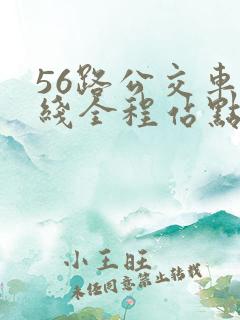 56路公交車
綫全程佔點
小王旺
未经同意禁止转载